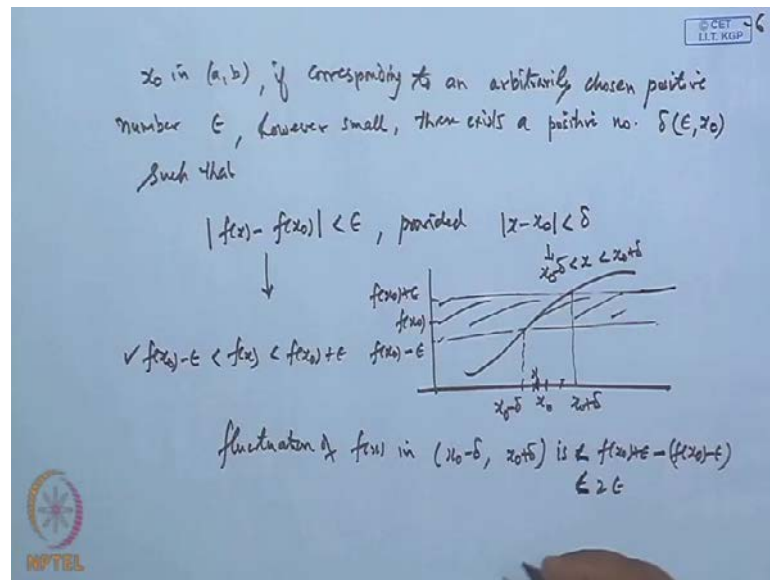 © CET
I.I.T. KGP
-6
x₀ in (a, b), if corresponding to an arbitrarily chosen positive
number ϵ, however small, there exists a positive no. δ(ϵ, x₀)
such that
|f(x) - f(x₀)| < ϵ, provided |x - x₀| < δ
↓ ↓
x₀-δ < x < x₀+δ
f(x₀)+ϵ
f(x₀)
✓ f(x₀)-ϵ < f(x) < f(x₀)+ϵ f(x₀)-ϵ
x
x₀-δ x₀ x₀+δ
fluctuation of f(x) in (x₀-δ, x₀+δ) is < f(x₀)+ϵ-(f(x₀)-ϵ)
< 2ϵ
NPTEL